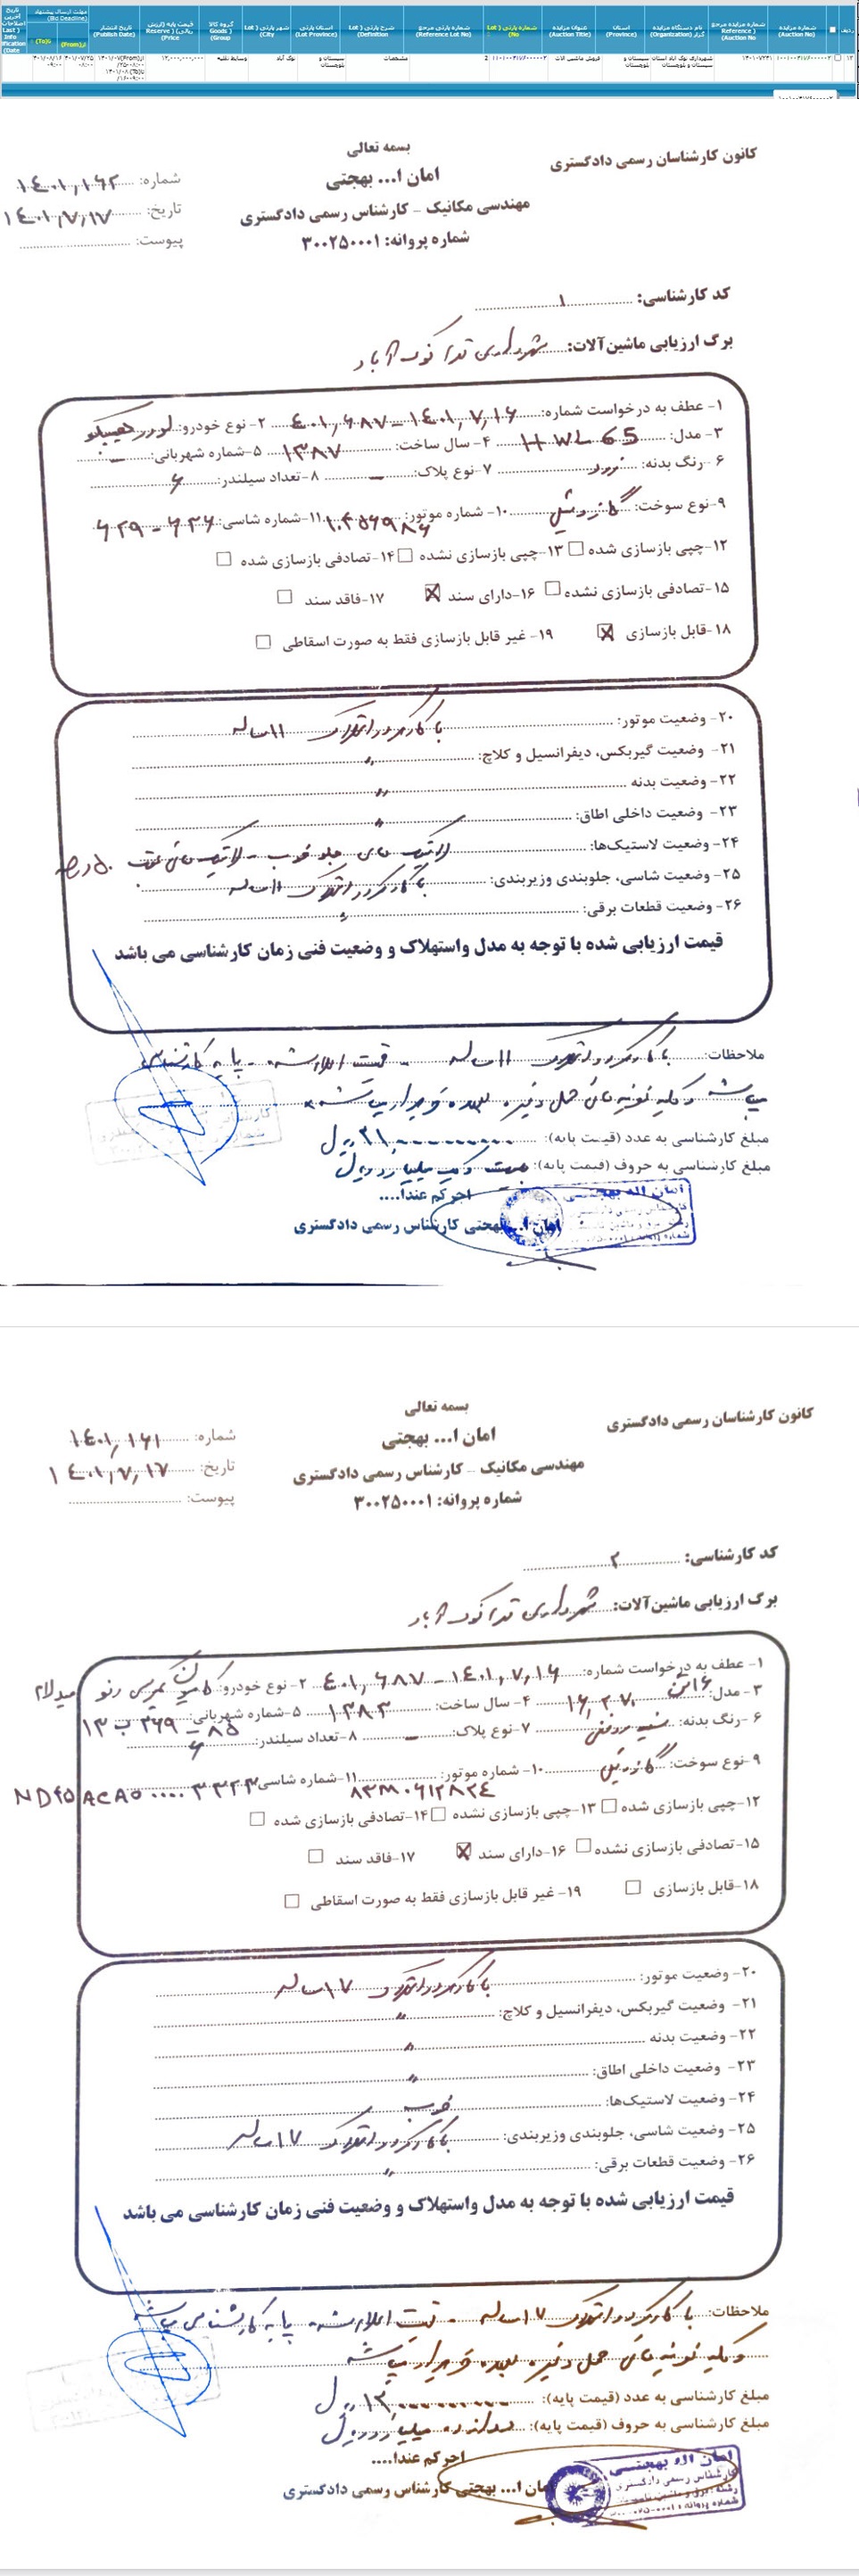 ردیف
شماره مزایده (Auction No)
شماره مزایده مرجع (Reference Auction No)
نام دستگاه مزایده گزار (Organization)
استان (Province)
عنوان مزایده (Auction Title)
شماره پارتی (Lot No)
شماره پارتی مرجع (Reference Lot No)
شرح پارتی (Lot Definition)
استان پارتی (Lot Province)
شهر پارتی (Lot City)
گروه کالا (Goods Group)
قیمت پایه (ارزش ریالی) (Reserve Price)
تاریخ انتشار (Publish Date)
مهلت ارسال پیشنهاد (Bid Deadline)
از(From)
تا(To)
شهرداری نوک آباد استان سیستان و بلوچستان
سیستان و بلوچستان
فروش ماشین آلات
2
مشخصات
سیستان و بلوچستان
نوک آباد
وسایط نقلیه
۱۳,۰۰۰,۰۰۰,۰۰۰
بسمه تعالی
کانون کارشناسان رسمی دادگستری
امان ا... بهجتی
مهندسی مکانیک – کارشناس رسمی دادگستری
شماره پروانه: ۳۰۰۲۵۰۰۰۱
شماره: ۱۴۰۱,۱۶۲
تاریخ: ۱۴۰۱,۷,۱۷
پیوست:
کد کارشناسی: ۱
برگ ارزیابی ماشین‌آلات: شهرداری نوک آباد
۱- عطف به درخواست شماره: ۴۰۱,۶۸۷ – ۱۴۰۱,۷,۱۶ ۲- نوع خودرو: لودر
۳- مدل: HWL 65 ۴- سال ساخت: ۱۳۸۷ ۵-شماره شهربانی: –
۶ -رنگ بدنه: زرد ۷-نوع پلاک: – ۸-تعداد سیلندر: ۶
۹-نوع سوخت: گازوئیل ۱۰- شماره موتور: ۱۱-شماره شاسی:
۱۲-چپی بازسازی شده ۱۳-چپی بازسازی نشده ۱۴-تصادفی بازسازی شده
۱۵-تصادفی بازسازی نشده ۱۶-دارای سند ۱۷-فاقد سند
۱۸-قابل بازسازی ۱۹- غیر قابل بازسازی فقط به صورت اسقاطی
۲۰- وضعیت موتور: با کارکرد و استهلاک ۱۱ ساله
۲۱- وضعیت گیربکس، دیفرانسیل و کلاچ: "
۲۲- وضعیت بدنه "
۲۳- وضعیت داخلی اطاق: "
۲۴- وضعیت لاستیک‌ها: لاستیک های جلو خوب – لاستیک های عقب ۵۰ درصد
۲۵- وضعیت شاسی، جلوبندی وزیربندی: با کارکرد و استهلاک ۱۱ ساله
۲۶- وضعیت قطعات برقی: "
قیمت ارزیابی شده با توجه به مدل واستهلاک و وضعیت فنی زمان کارشناسی می باشد
ملاحظات: با کارکرد و استهلاک ۱۱ ساله - قیمت اعلام شده - پایه کارشناسی
میباشد و کلیه هزینه های حمل و غیره بعهده خریدار میباشد
مبلغ کارشناسی به عدد (قیمت پایه): ۲۱,۰۰۰,۰۰۰,۰۰۰ ریال
مبلغ کارشناسی به حروف (قیمت پایه): بیست و یک میلیارد ریال
اجرکم عندا....
امان ا... بهجتی کارشناس رسمی دادگستری
امان اله بهجتی
بسمه تعالی
کانون کارشناسان رسمی دادگستری
امان ا... بهجتی
مهندسی مکانیک – کارشناس رسمی دادگستری
شماره پروانه: ۳۰۰۲۵۰۰۰۱
شماره: ۱۴۰۱,۱۶۱
تاریخ: ۱۴۰۱,۷,۱۷
پیوست:
کد کارشناسی: ۲
برگ ارزیابی ماشین‌آلات: شهرداری نوک آباد
۱- عطف به درخواست شماره: ۴۰۱,۶۸۷ – ۱۴۰۱,۷,۱۶ ۲- نوع خودرو: کامیون کمپرسی رنو میدلام
۳- مدل: ۱۶ تن ۴- سال ساخت: ۱۳۸۳ ۵-شماره شهربانی:
۶ -رنگ بدنه: سفید روغنی ۷-نوع پلاک: – ۸-تعداد سیلندر: ۶
۹-نوع سوخت: گازوئیل ۱۰- شماره موتور: ۱۱-شماره شاسی:
۱۲-چپی بازسازی شده ۱۳-چپی بازسازی نشده ۱۴-تصادفی بازسازی شده
۱۵-تصادفی بازسازی نشده ۱۶-دارای سند ۱۷-فاقد سند
۱۸-قابل بازسازی ۱۹- غیر قابل بازسازی فقط به صورت اسقاطی
۲۰- وضعیت موتور: با کارکرد و استهلاک ۱۷ ساله
۲۱- وضعیت گیربکس، دیفرانسیل و کلاچ: "
۲۲- وضعیت بدنه "
۲۳- وضعیت داخلی اطاق: "
۲۴- وضعیت لاستیک‌ها: خوب
۲۵- وضعیت شاسی، جلوبندی وزیربندی: با کارکرد و استهلاک ۱۷ ساله
۲۶- وضعیت قطعات برقی: "
قیمت ارزیابی شده با توجه به مدل واستهلاک و وضعیت فنی زمان کارشناسی می باشد
ملاحظات: با کارکرد و استهلاک ۱۷ ساله - قیمت اعلام شده - پایه کارشناسی میباشد
و کلیه هزینه های حمل و غیره بعهده خریدار میباشد
مبلغ کارشناسی به عدد (قیمت پایه): ۱۳,۰۰۰,۰۰۰,۰۰۰ ریال
مبلغ کارشناسی به حروف (قیمت پایه): سیزده میلیارد ریال
اجرکم عندا....
امان ا... بهجتی کارشناس رسمی دادگستری
امان اله بهجتی
کارشناس رسمی دادگستری